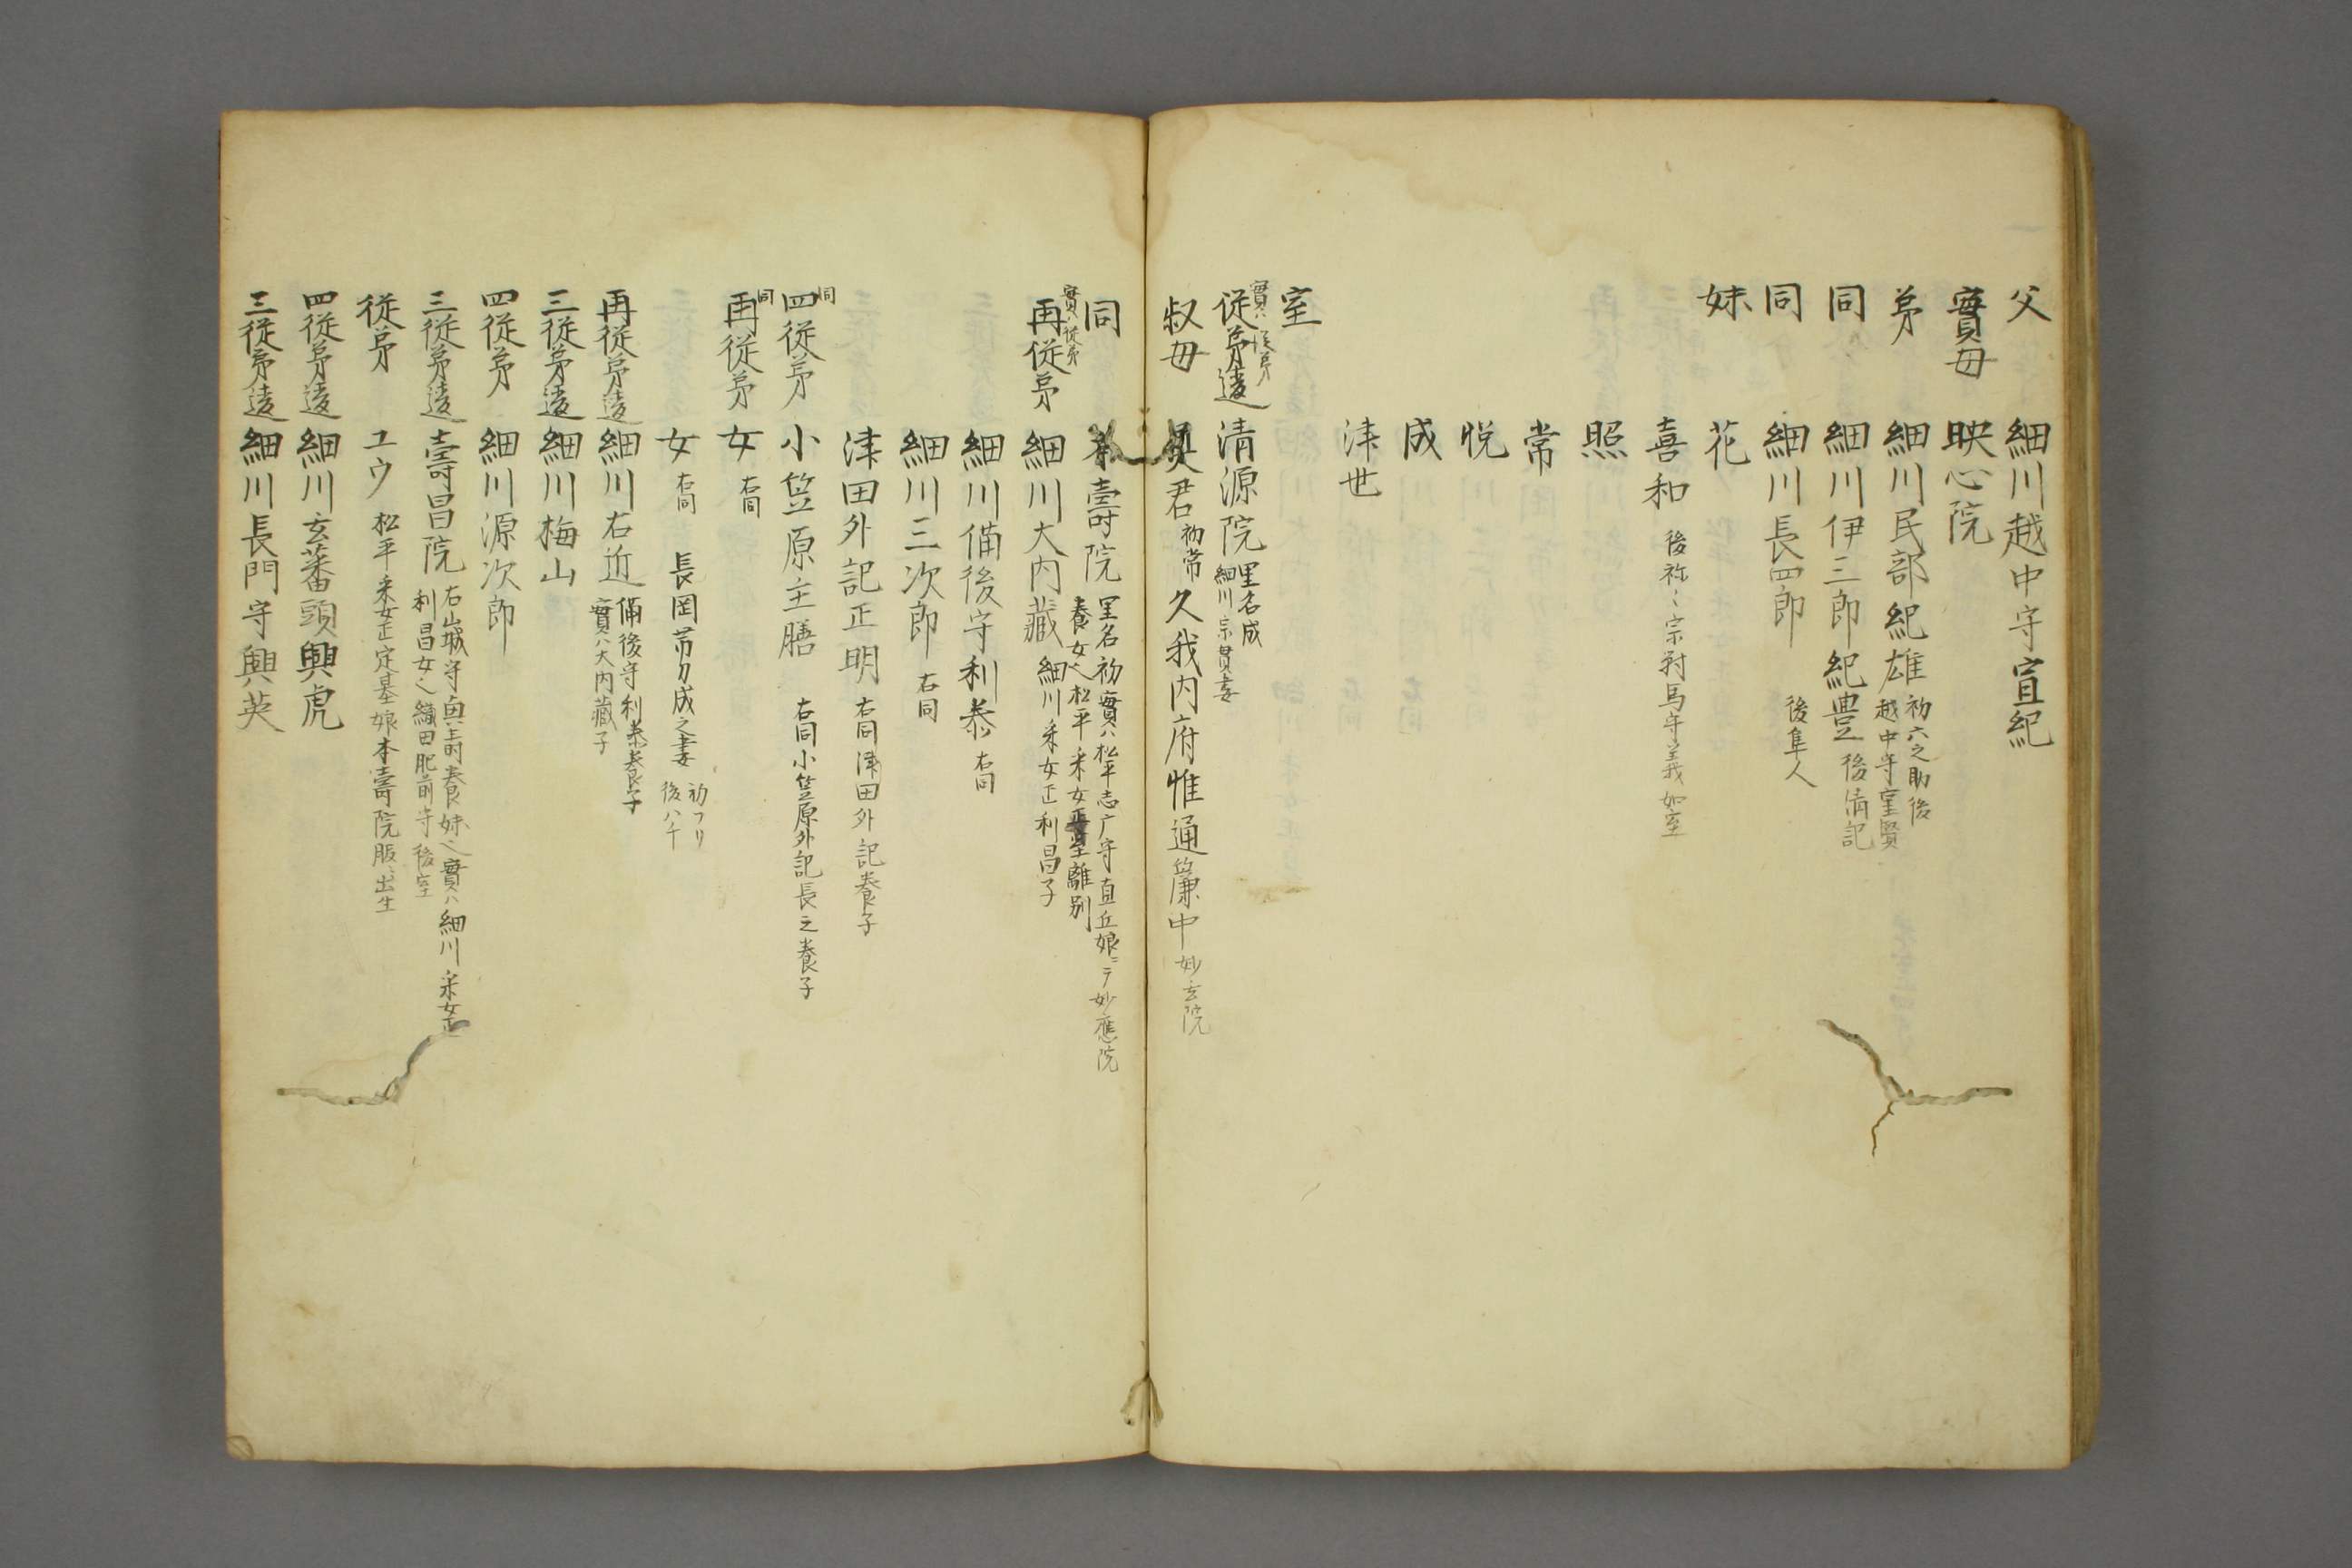 父 細川越中守宣紀
實母 映心院
弟 細川民部紀雄 初六之助後
越中守重賢
同 細川伊三郎紀豊 後清記
同 細川長四郎 後隼人
妹 花
喜和 後祢々宗對馬守義如室
照
常
悦
成
津世
室
實ハ従弟
従弟違 清源院 里名成
細川宗貫妻
叔母 具君 初常 久我内府惟通簾中 妙玄院
同 本壽院 里名初實ハ松平志广守直丘娘ニテ妙應院
養女也松平采女正室離別
實ハ従弟
再従弟 細川大内藏 細川采女正利昌子
細川備後守利恭 右同
細川三次郎 右同
津田外記正明 右同津田外記養子
同
四従弟 小笠原主膳 右同小笠原外記長之養子
同
再従弟 女 右同
女 右同 長岡帯刀成之妻 初フリ
後ハ千
再従弟違 細川右近 備後守利恭養子
實ハ大内藏子
三従弟違 細川梅山
四従弟 細川源次郎
三従弟違 壽昌院 右山城守興壽養妹也實ハ細川采女正
利昌女也織田肥前守後室
従弟 ユウ 松平采女正定基娘本壽院服ニ出生
四従弟違 細川玄蕃頭興虎
三従弟違 細川長門守興英